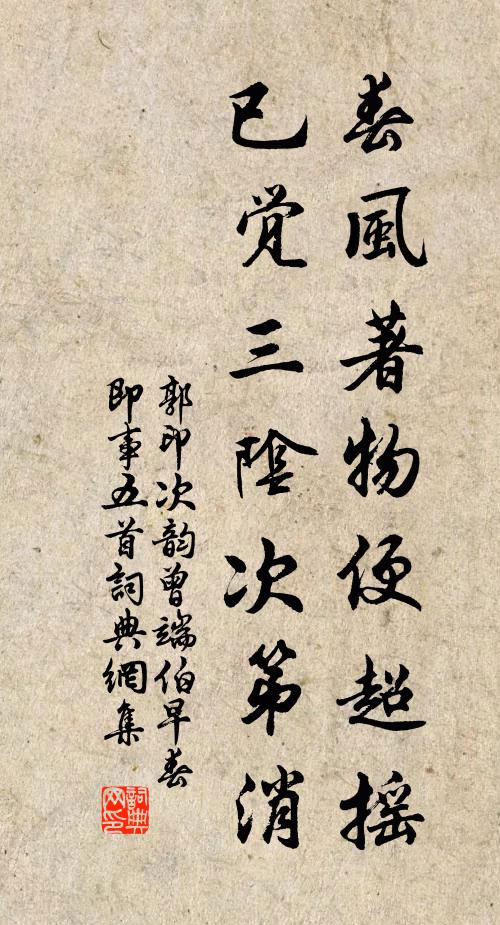 春風著物便超摇
已觉三陰次第消
郭印次韵曾端伯早春
即事五首詞典網集
詞典網印